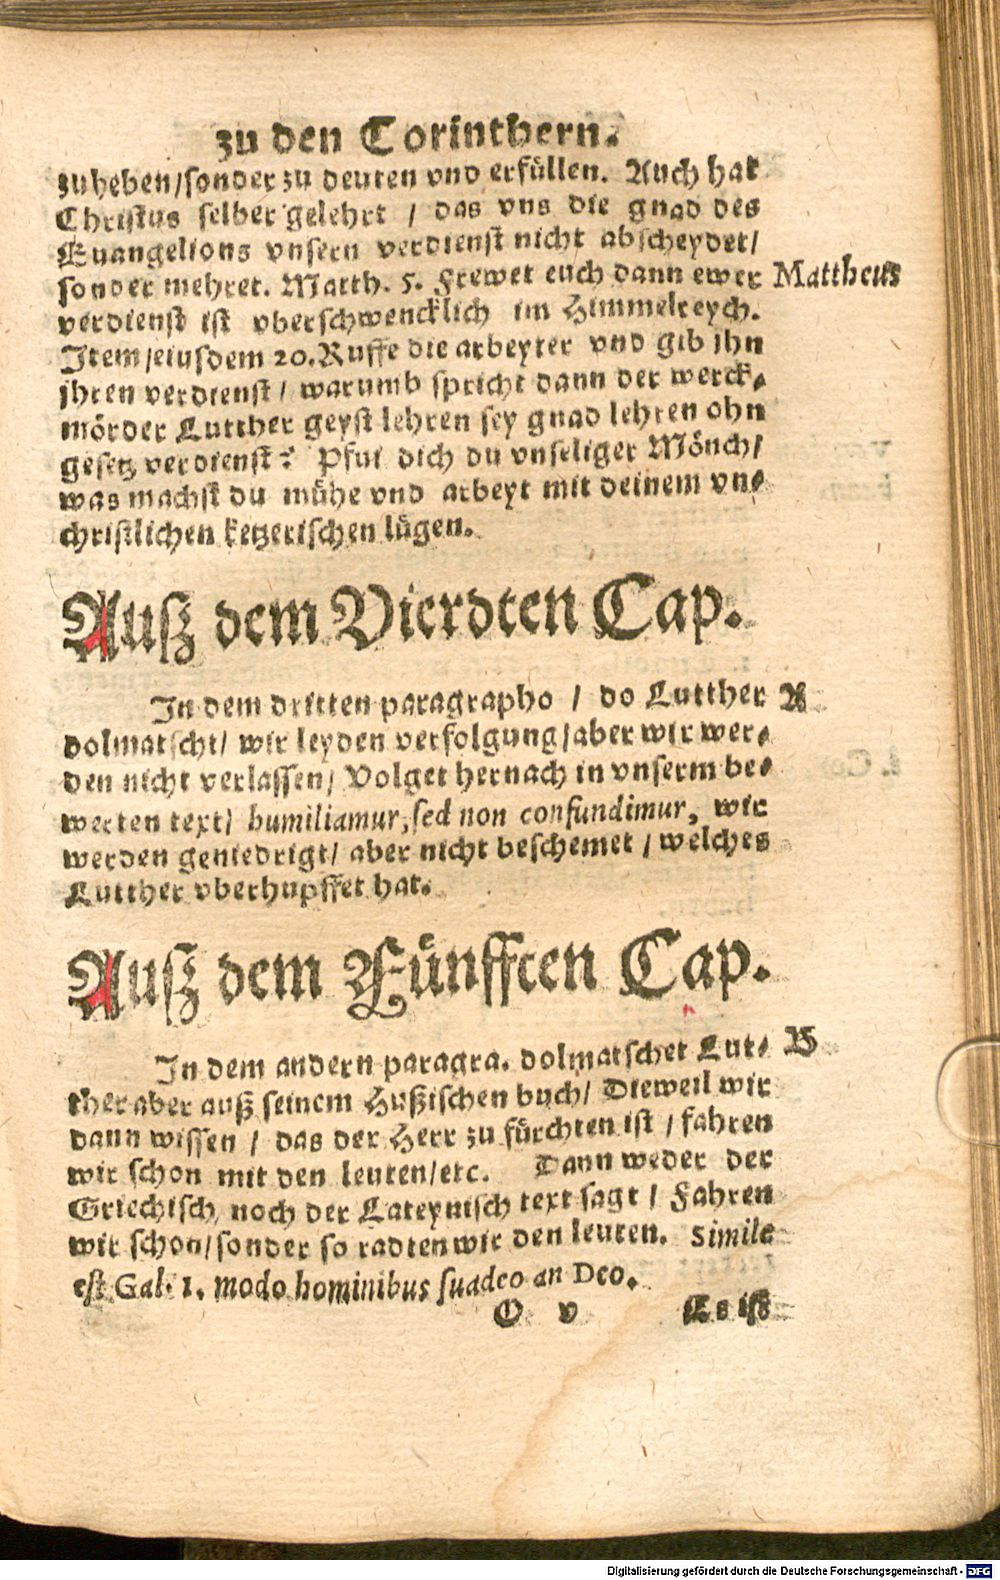 zu den Corinthern.
zuheben/sonder zu deuten vnd erfüllen. Auch hat
Christus selber gelehrt / das vns die gnad des
Euangelions vnsern verdienst nicht abscheydet/
sonder mehret. Matth. 5. Frewet euch dann ewer Mattheus
verdienst ist vberschwencklich im Himmelreych.
Item/eiusdem 20. Ruffe die arbeyter vnd gib ihn
jhren verdienst/ warumb spricht dann der werck-
mörder Lutther geyst lehren sey gnad lehren ohn
gesetz verdienst? Pfui dich du vnseliger Mönch/
was machst du mühe vnd arbeyt mit deinem vn-
christlichen ketzerischen lügen.
Ausz dem Vierdten Cap.
In dem dritten paragrapho / do Lutther A
dolmatscht/ wir leyden verfolgung/aber wir wer-
den nicht verlassen/ Volget hernach in vnserm be-
werten text/ humiliamur, sed non confundimur, wir
werden geniedrigt/ aber nicht beschemet / welches
Lutther vberhupffet hat.
Ausz dem Fünfften Cap.
In dem andern paragra. dolmatschet Lut- B
ther aber auß seinem Hußischen buch/ Dieweil wir
dann wissen / das der Herr zu fürchten ist / fahren
wir schon mit den leuten/etc. Dann weder der
Griechisch noch der Lateynisch text sagt / Fahren
wir schon/sonder so radten wir den leuten. Simile
est Gal. 1. modo hominibus suadeo an Deo.
O v Es ist
Digitalisierung gefördert durch die Deutsche Forschungsgemeinschaft - DFG